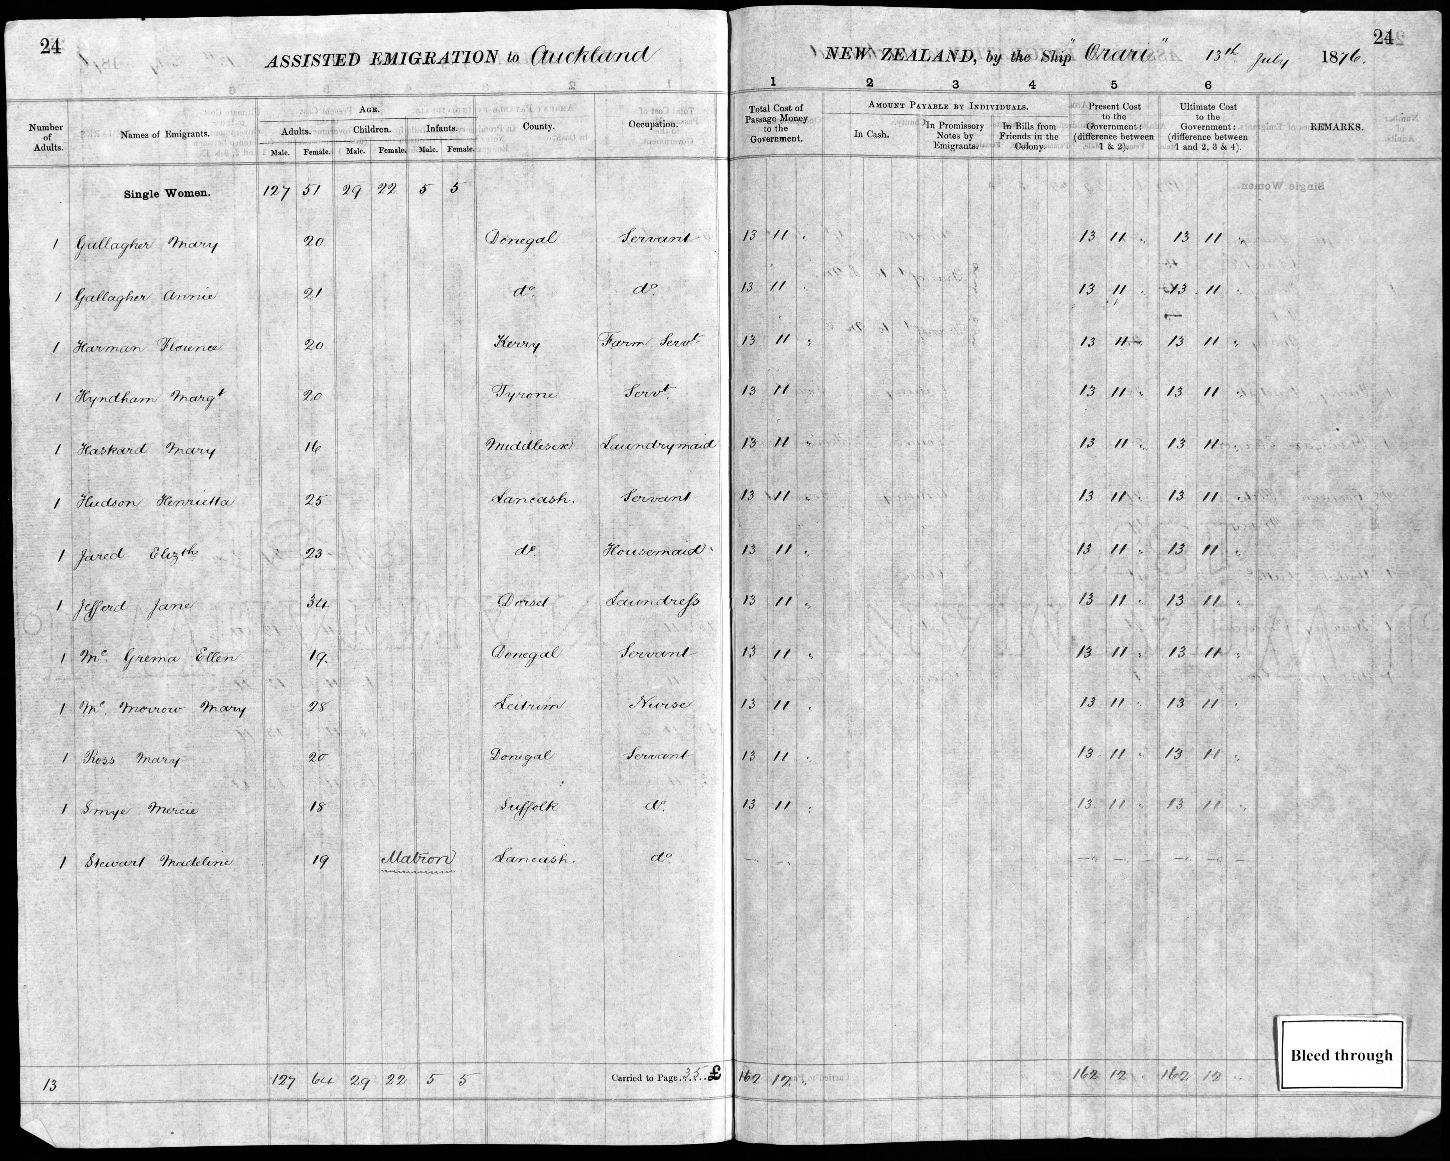 24
ASSISTED EMIGRATION to Auckland
NEW ZEALAND, by the Ship "Orari" 13th July 1876.
24
1 2 3 4 5 6
Number of Adults.
Names of Emigrants.
AGE.
Adults. Children. Infants.
Male. Female. Male. Female. Male. Female.
County.
Occupation.
Total Cost of Passage Money to the Government.
AMOUNT PAYABLE BY INDIVIDUALS.
In Cash.
In Promissory Notes by Emigrants.
In Bills from Friends in the Colony.
Present Cost to the Government: (difference between 1 & 2).
Ultimate Cost to the Government: (difference between 1 and 2, 3 & 4).
REMARKS.
Single Women. 127 51 29 22 5 5
1 Gallagher Mary 20 Donegal Servant 13 11 " 13 11 " 13 11 "
1 Gallagher Annie 21 do. do. 13 11 " 13 11 " 13 11 "
1 Harman Florence 20 Kerry Farm Servt 13 11 " 13 11 " 13 11 "
1 Hyndham Margt 20 Tyrone Servt. 13 11 " 13 11 " 13 11 "
1 Haskard Mary 16 Middlesex Laundrymaid 13 11 " 13 11 " 13 11 "
1 Hudson Henrietta 25 Lancash. Servant 13 11 " 13 11 " 13 11 "
1 Jared Elizth 23 do. Housemaid 13 11 " 13 11 " 13 11 "
1 Jefferd Jane 34 Dorset Laundress 13 11 " 13 11 " 13 11 "
1 Mc. Grema Ellen 19. Donegal Servant 13 11 " 13 11 " 13 11 "
1 Mc. Morrow Mary 28 Leitrim Nurse 13 11 " 13 11 " 13 11 "
1 Ross Mary 20 Donegal Servant 13 11 " 13 11 " 13 11 "
1 Smye Mercie 18 Suffolk do. 13 11 " 13 11 " 13 11 "
1 Stewart Madeline 19 Matron Lancash. do. — " — " — " — " —
13 127 64 29 22 5 5 Carried to Page 35 £ 162 12 " 162 12 " 162 12 "
Bleed through